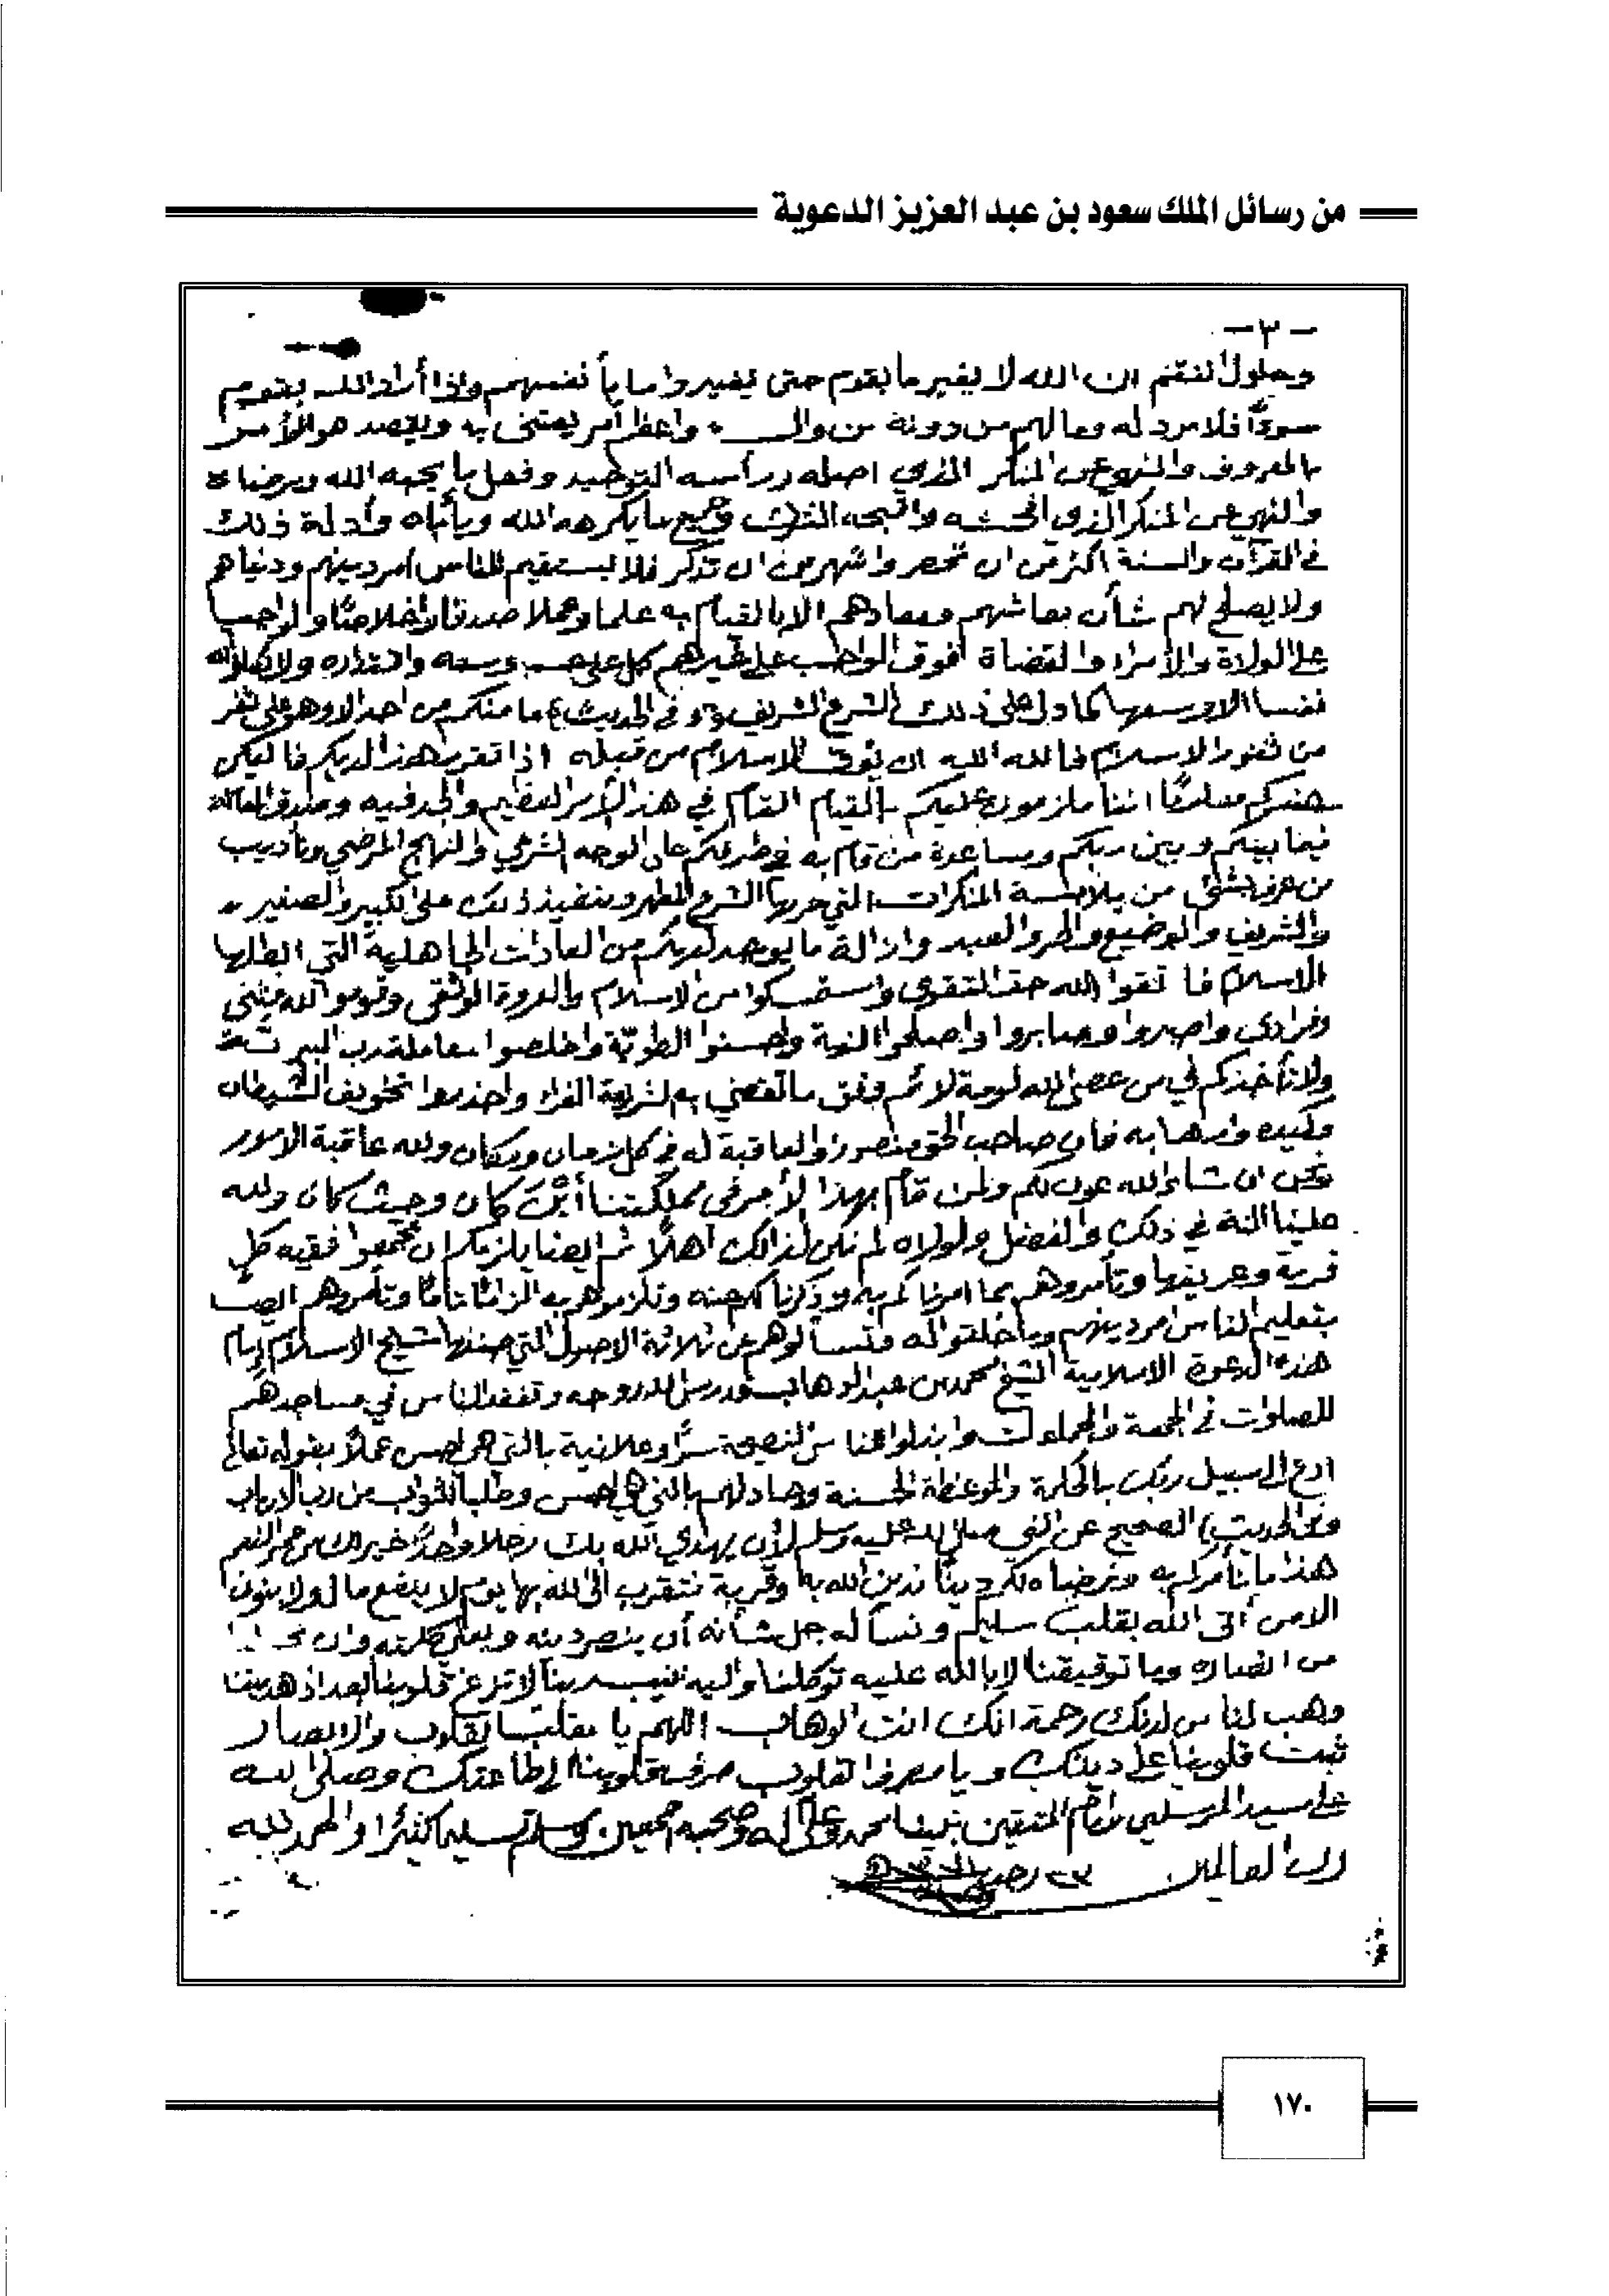 من رسائل الملك سعود بن عبد العزيز الدعوية
- ٣ -
وحلول النقم ان الله لا يغير ما بقوم حتى يغيروا ما بأنفسهم وإذا أراد الله بقوم
سوءًا فلا مرد له وما لهم من دونه من وال واعظم أمر يعتنى به ويقصد هو الأمر
بالمعروف والنهي عن المنكر الذي اصله ورأسه التوحيد وفعل ما يحبه الله ويرضاه
والنهي عن المنكر الذي افحشه واقبحه الشرك وجميع ما يكرهه الله ويأباه وأدلة ذلك
في القرآن والسنة اكثر من ان تحصر واشهر من ان تذكر فلا يستقيم للناس امر دينهم ودنياهم
ولا يصلح لهم شأن بمعاشهم ومعادهم الا بالقيام به علما وعملا صدقا وإخلاصًا والواجب
على الولاة والأمراء والقضاة افوق الواجب على غيرهم كل على حسب وسعه واقتداره ولا يكلف الله
نفسا الا وسعها كما دل على ذلك الشرع الشريف وفي الحديث ما منكم من احد الا وهو على ثغر
من ثغور الاسلام فالله الله ان يؤتى الاسلام من قبله اذا تقرر هذا لديكم فاليكن
عندكم معلومًا اننا ملزمون عليكم بالقيام التام في هذا الأمر العظيم والجد فيه وصدق المعاملة
فيما بينكم وبين ربكم ومساعدة من قام به في طرفكم على الوجه الشرعي والنهج المرضي وتأديب
من من يلابسه المنكرات التي حرمها الشرع المطهر وبتنفيذ ذلك على الكبير والصغير
والشريف والوضيع والحر والعبد وازالة ما يوجد لديكم من العادات الجاهلية التي ابطلها
الاسلام فا تقوا الله حق التقوى واستمسكوا من الاسلام بالعروة الوثقى وقوموا لله مثنى
وفرادى واصبروا وصابروا واصلحوا النية واحسنوا الطويّة واخلصوا معاملة رب البريّة
ولا تأخذكم في من عصى الله لومة لائم وفق ما تقضي به الشريعة الغراء واحذروا تخويف الشيطان
وكيده وارهابه فان صاحب الحق منصور والعاقبة له في كل زمان ومكان ولله عاقبة الامور
نحن ان شاء الله عون لكم ولمن قام بهذا الأمر في مملكتنا أيْن كان وحيث كان ولله
علينا المنة في ذلك والفضل ولولاه لم نكن لذالك أهلاً ثم ايضا يلزمكم ان تجمعوا فقيه كل
قرية وعريفها وتأمروهم بما امرناكم به وذكرناكم عنه وتلزموهم به الزامًا تامًا وتأمروهم ايضا
بتعليم الناس امر دينهم وما خلقوا له وتسألوهم عن ثلاثة الاصول التي صنفها شيخ الاسلام إمام
هذه الدعوة الاسلامية الشيخ محمد بن عبد الوهاب قدس الله روحه وتفقد الناس في مساجدهم
للصلوات في الجمعة والجماعات وابذلوا للناس النصيحة سرًا وعلانية بالتي هي احسن عملاً بقوله تعالى
ادع الى سبيل ربك بالحكمة والموعظة الحسنة وجادلهم بالتي هي احسن وطلبا للثواب من رب الارباب
وفي الحديث الصحيح عن النبي صلى الله عليه وسلم لأن يهدي الله بك رجلا واحدًا خير لك من حمر النعم
هذا ما نأمركم به ونرضاه لكم دينًا ندين الله به وقربة نتقرب الى الله بها يوم لا ينفع مال ولا بنون
الا من أتى الله بقلب سليم ونسأله جل شأنه أن ينصر دينه ويعلي كلمته وان
من انصاره وما توفيقنا الا بالله عليه توكلنا واليه ننيب ربنا لا تزغ قلوبنا بعد اذ هديتنا
وهب لنا من لدنك رحمة انك انت الوهاب اللهم يا مقلب القلوب والابصار
ثبت قلوبنا على دينك ويا مصرف القلوب صرف قلوبنا الى طاعتك وصلى الله
على سيد المرسلين وامام المتقين نبينا محمد وعلى آله وصحبه اجمعين وسلم تسليما كثيرًا والحمد لله
رب العالمين ٢٣ رجب
١٧٠